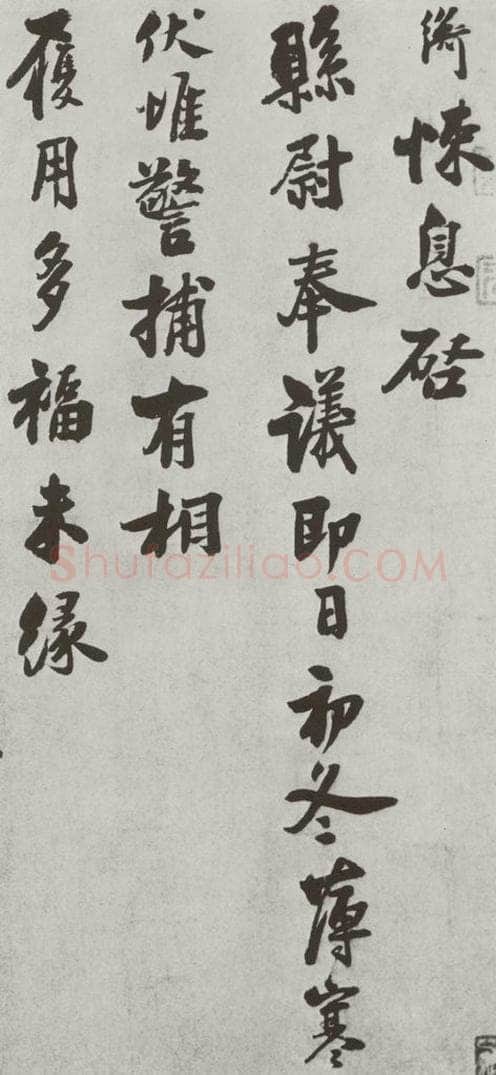 绮悚息启
縣尉奉議即日初冬薄寒
伏惟警捕有相
履用多福未缘
Shufaziliao.COM